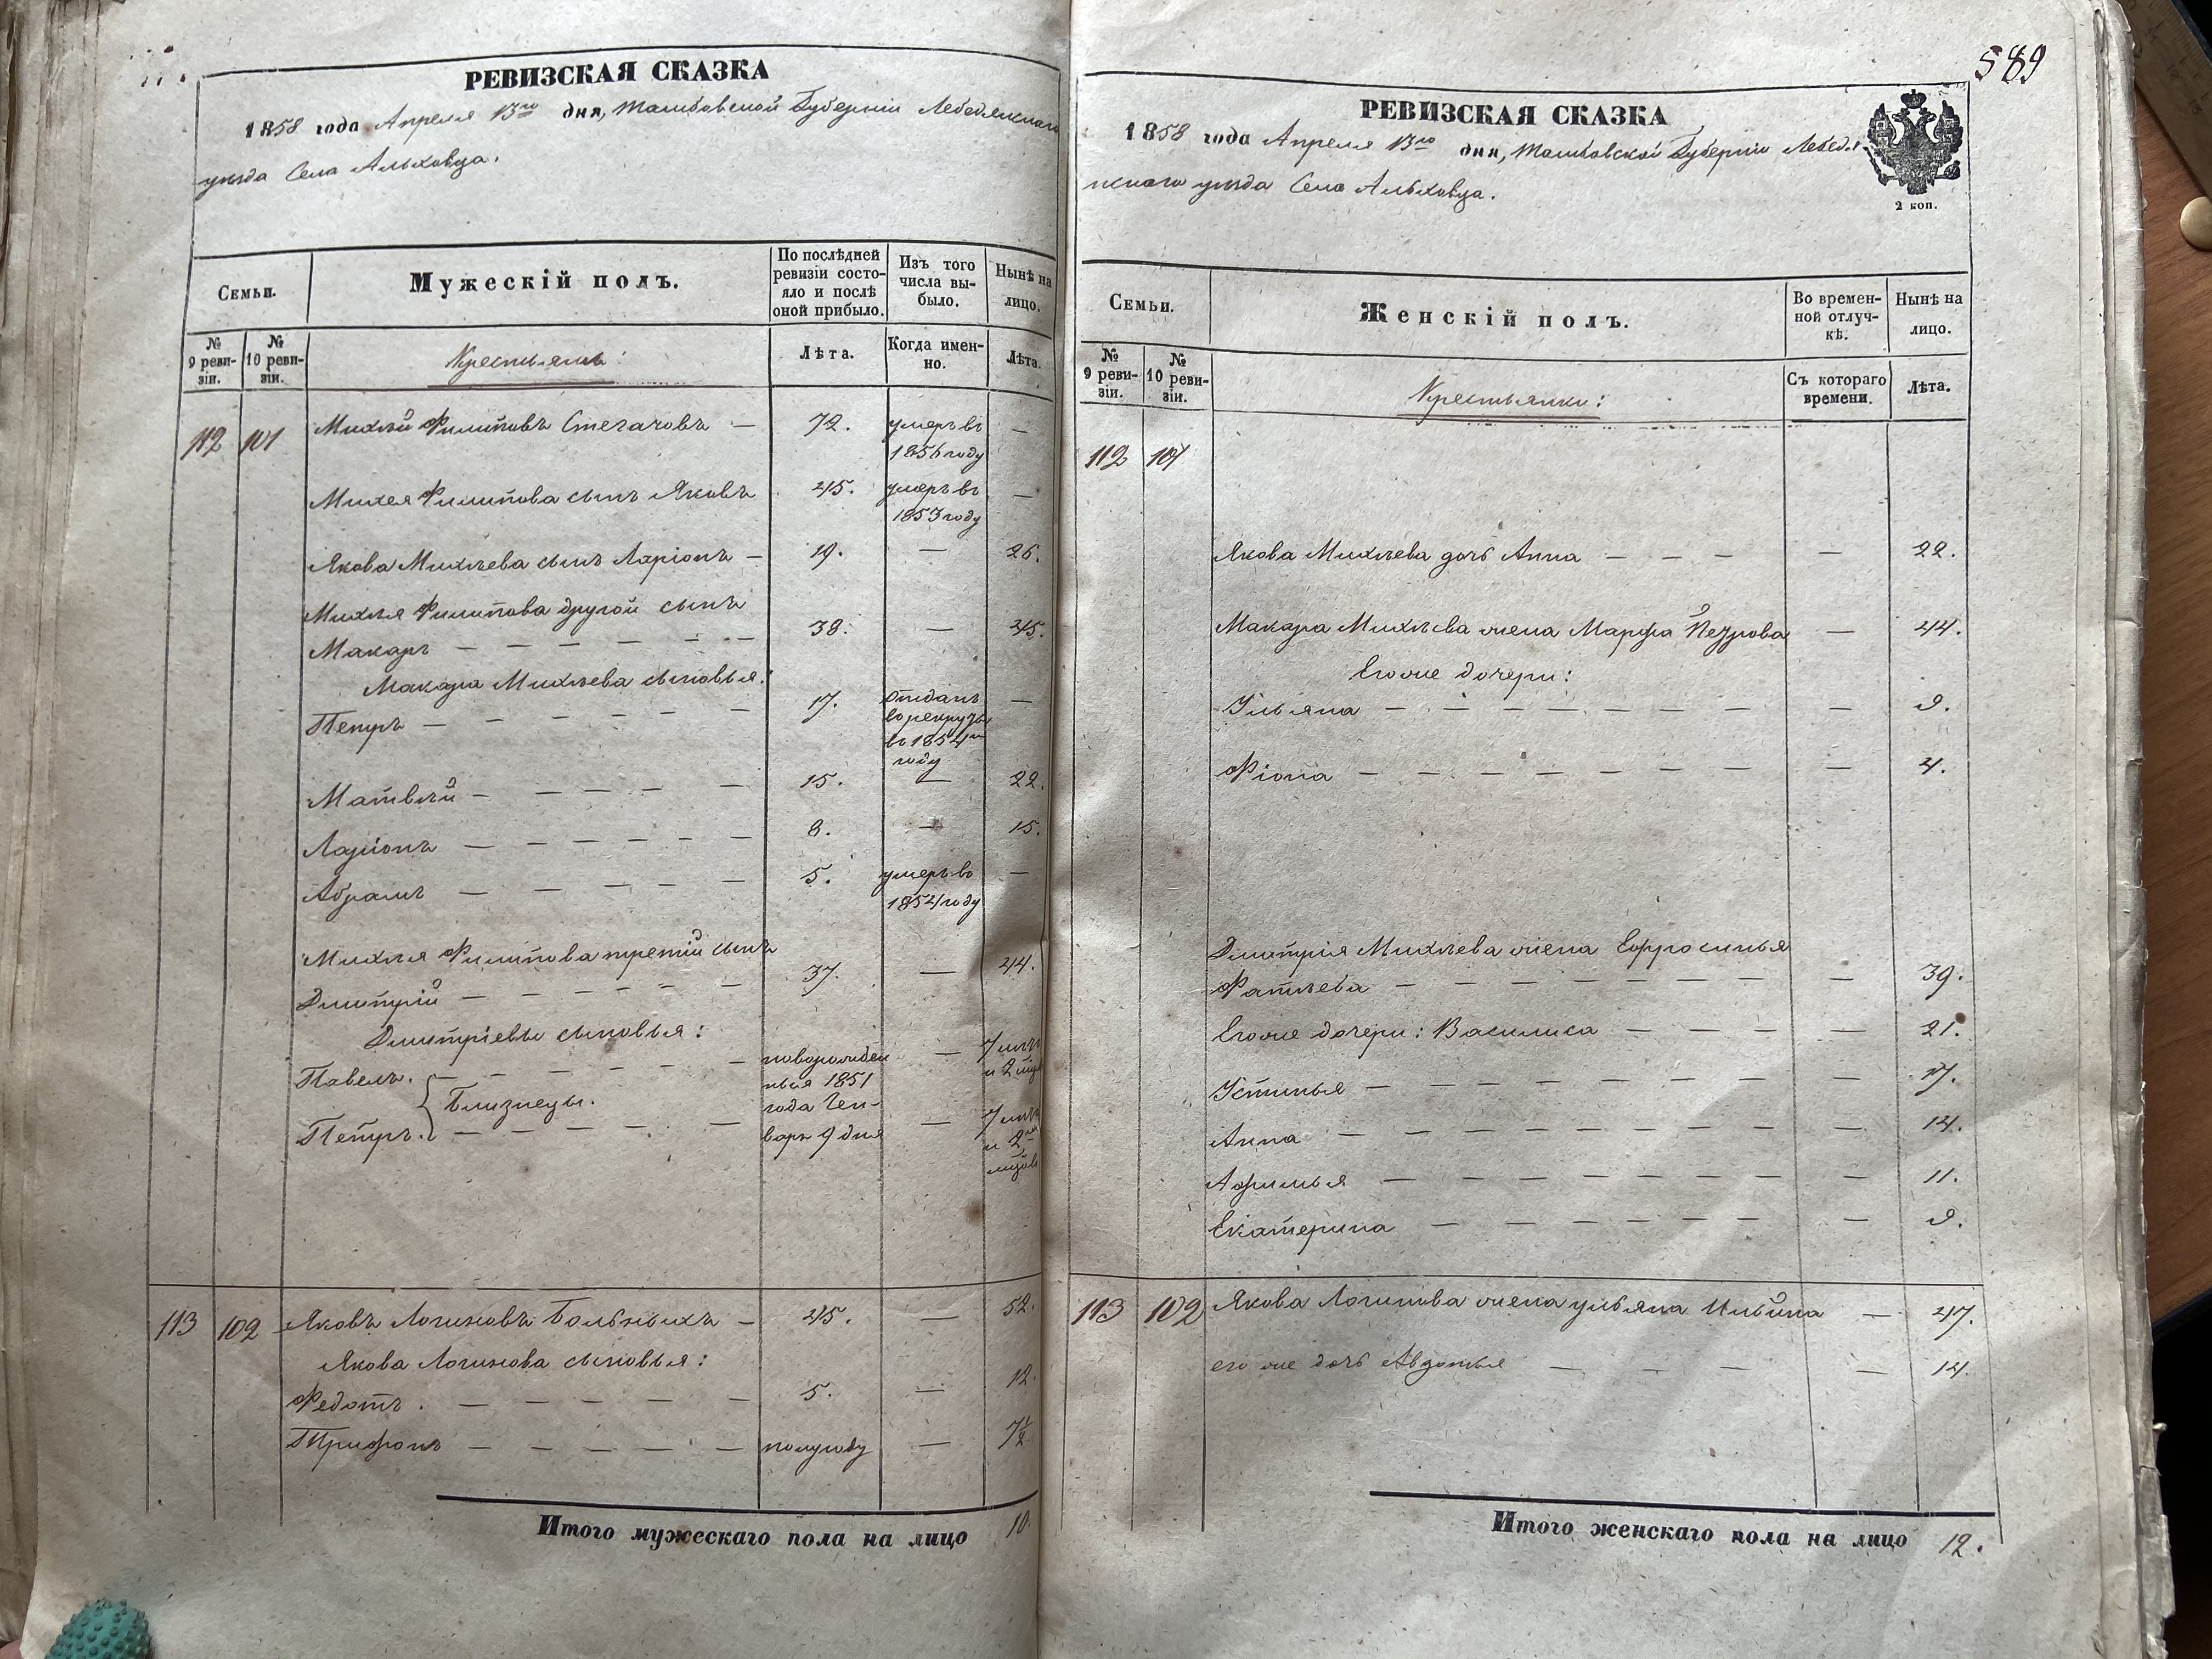 РЕВИЗСКАЯ СКАЗКА
1858 года Апреля 13го дня, Тамбовской Губернiи Лебедянскаго
уѣзда Села Альховца.
Семьи.
Мужескiй полъ.
По послѣдней
ревизiи состо-
яло и послѣ
оной прибыло.
Изъ того
числа вы-
было.
Нынѣ на
лицо.
№
9 реви-
зiи.
№
10 реви-
зiи.
Крестьянъ:
Лѣта.
Когда имен-
но.
Лѣта.
112 101 Михѣй Филиповъ Стегачовъ — 72. умеръ въ —
1856 году
Михея Филипова сынъ Яковъ 45. умеръ въ —
1853 году
Якова Михѣева сынъ Ларiонъ — 19. — 26.
Михѣя Филипова другой сынъ
Макаръ — — — — — — 38. — 45.
Макара Михѣева сыновья:
Петръ — — — — — — — 17. Отданъ —
въ рекруты
въ 1854м
году
Матвѣй — — — — — 15. — 22.
Ларiонъ — — — — — — 8. — 15.
Абрамъ — — — — — — 5. умеръ въ —
1854 году
Михѣя Филипова третiй сынъ
Дмитрiй — — — — — — 37. — 44.
Дмитрiевы сыновья:
Павелъ. — — — — — — новорожден — 7 лѣтъ
и 2 мѣц
ныя 1851
Близнецы.
года Ген-
Петръ. — — — — — — варя 9 дня — 7 лѣтъ
и 2
мѣцов
113 102 Яковъ Логиновъ Больныхъ — 45. — 52.
Якова Логинова сыновья:
Федотъ. — — — — — 5. — 12.
Трифонъ — — — — — — полугоду — 7½
Итого мужескаго пола на лицо 10.
589
РЕВИЗСКАЯ СКАЗКА
1858 года Апреля 13го дня, Тамбовской Губернiи Лебедя-
нскаго уѣзда Села Альховца.
2 коп.
Семьи.
Женскiй полъ.
Во времен-
ной отлуч-
кѣ.
Нынѣ на
лицо.
№
9 реви-
зiи.
№
10 реви-
зiи.
Крестьянки:
Съ котораго
времени.
Лѣта.
112 101
Якова Михѣева дочь Анна — — — — 22.
Макара Михѣева жена Марфа Петрова — 44.
Егоже дочери:
Ульяна — — — — — — — — 9.
Фiона — — — — — — — — 4.
Дмитрiя Михѣева жена Ефросинья
Фатѣева — — — — — — — — 39.
Егоже дочери: Василиса — — — — — 21.
Устинья — — — — — — — — 17.
Анна — — — — — — — — 14.
Афимья — — — — — — — 11.
Екатерина — — — — — — — 9.
113 102 Якова Логинова жена ульяна Ильина — 47.
его же дочь Авдотья — — — — — 14.
Итого женскаго пола на лицо 12.